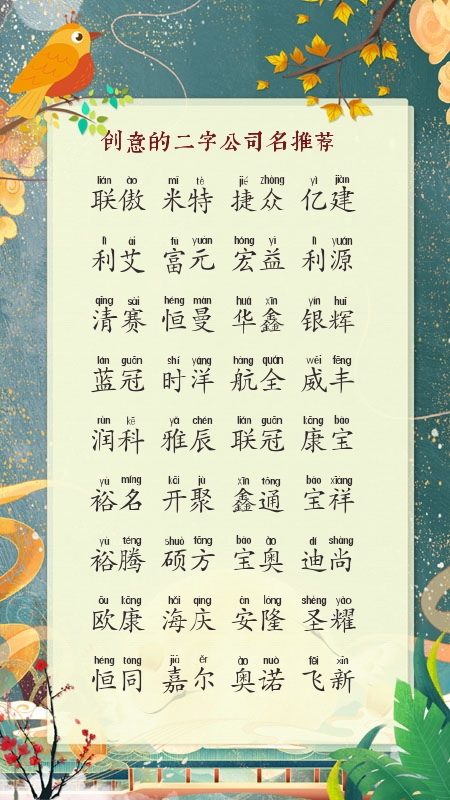 创意的二字公司名推荐
lián ào mǐ tè jié zhòng yì jiàn
联傲 米特 捷众 亿建
lì ài fù yuán hóng yì lì yuán
利艾 富元 宏益 利源
qīng sài héng màn huá xīn yín huī
清赛 恒曼 华鑫 银辉
lán guān shí yáng háng quán wēi fēng
蓝冠 时洋 航全 威丰
rùn kē yǎ chén lián guān kāng bǎo
润科 雅辰 联冠 康宝
yù míng kāi jù xīn tōng bǎo xiáng
裕名 开聚 鑫通 宝祥
yù téng shuò fāng bǎo ào dí shàng
裕腾 硕方 宝奥 迪尚
ōu kāng hǎi qìng ān lóng shèng yào
欧康 海庆 安隆 圣耀
héng tóng jiā ěr ào nuò fēi xīn
恒同 嘉尔 奥诺 飞新